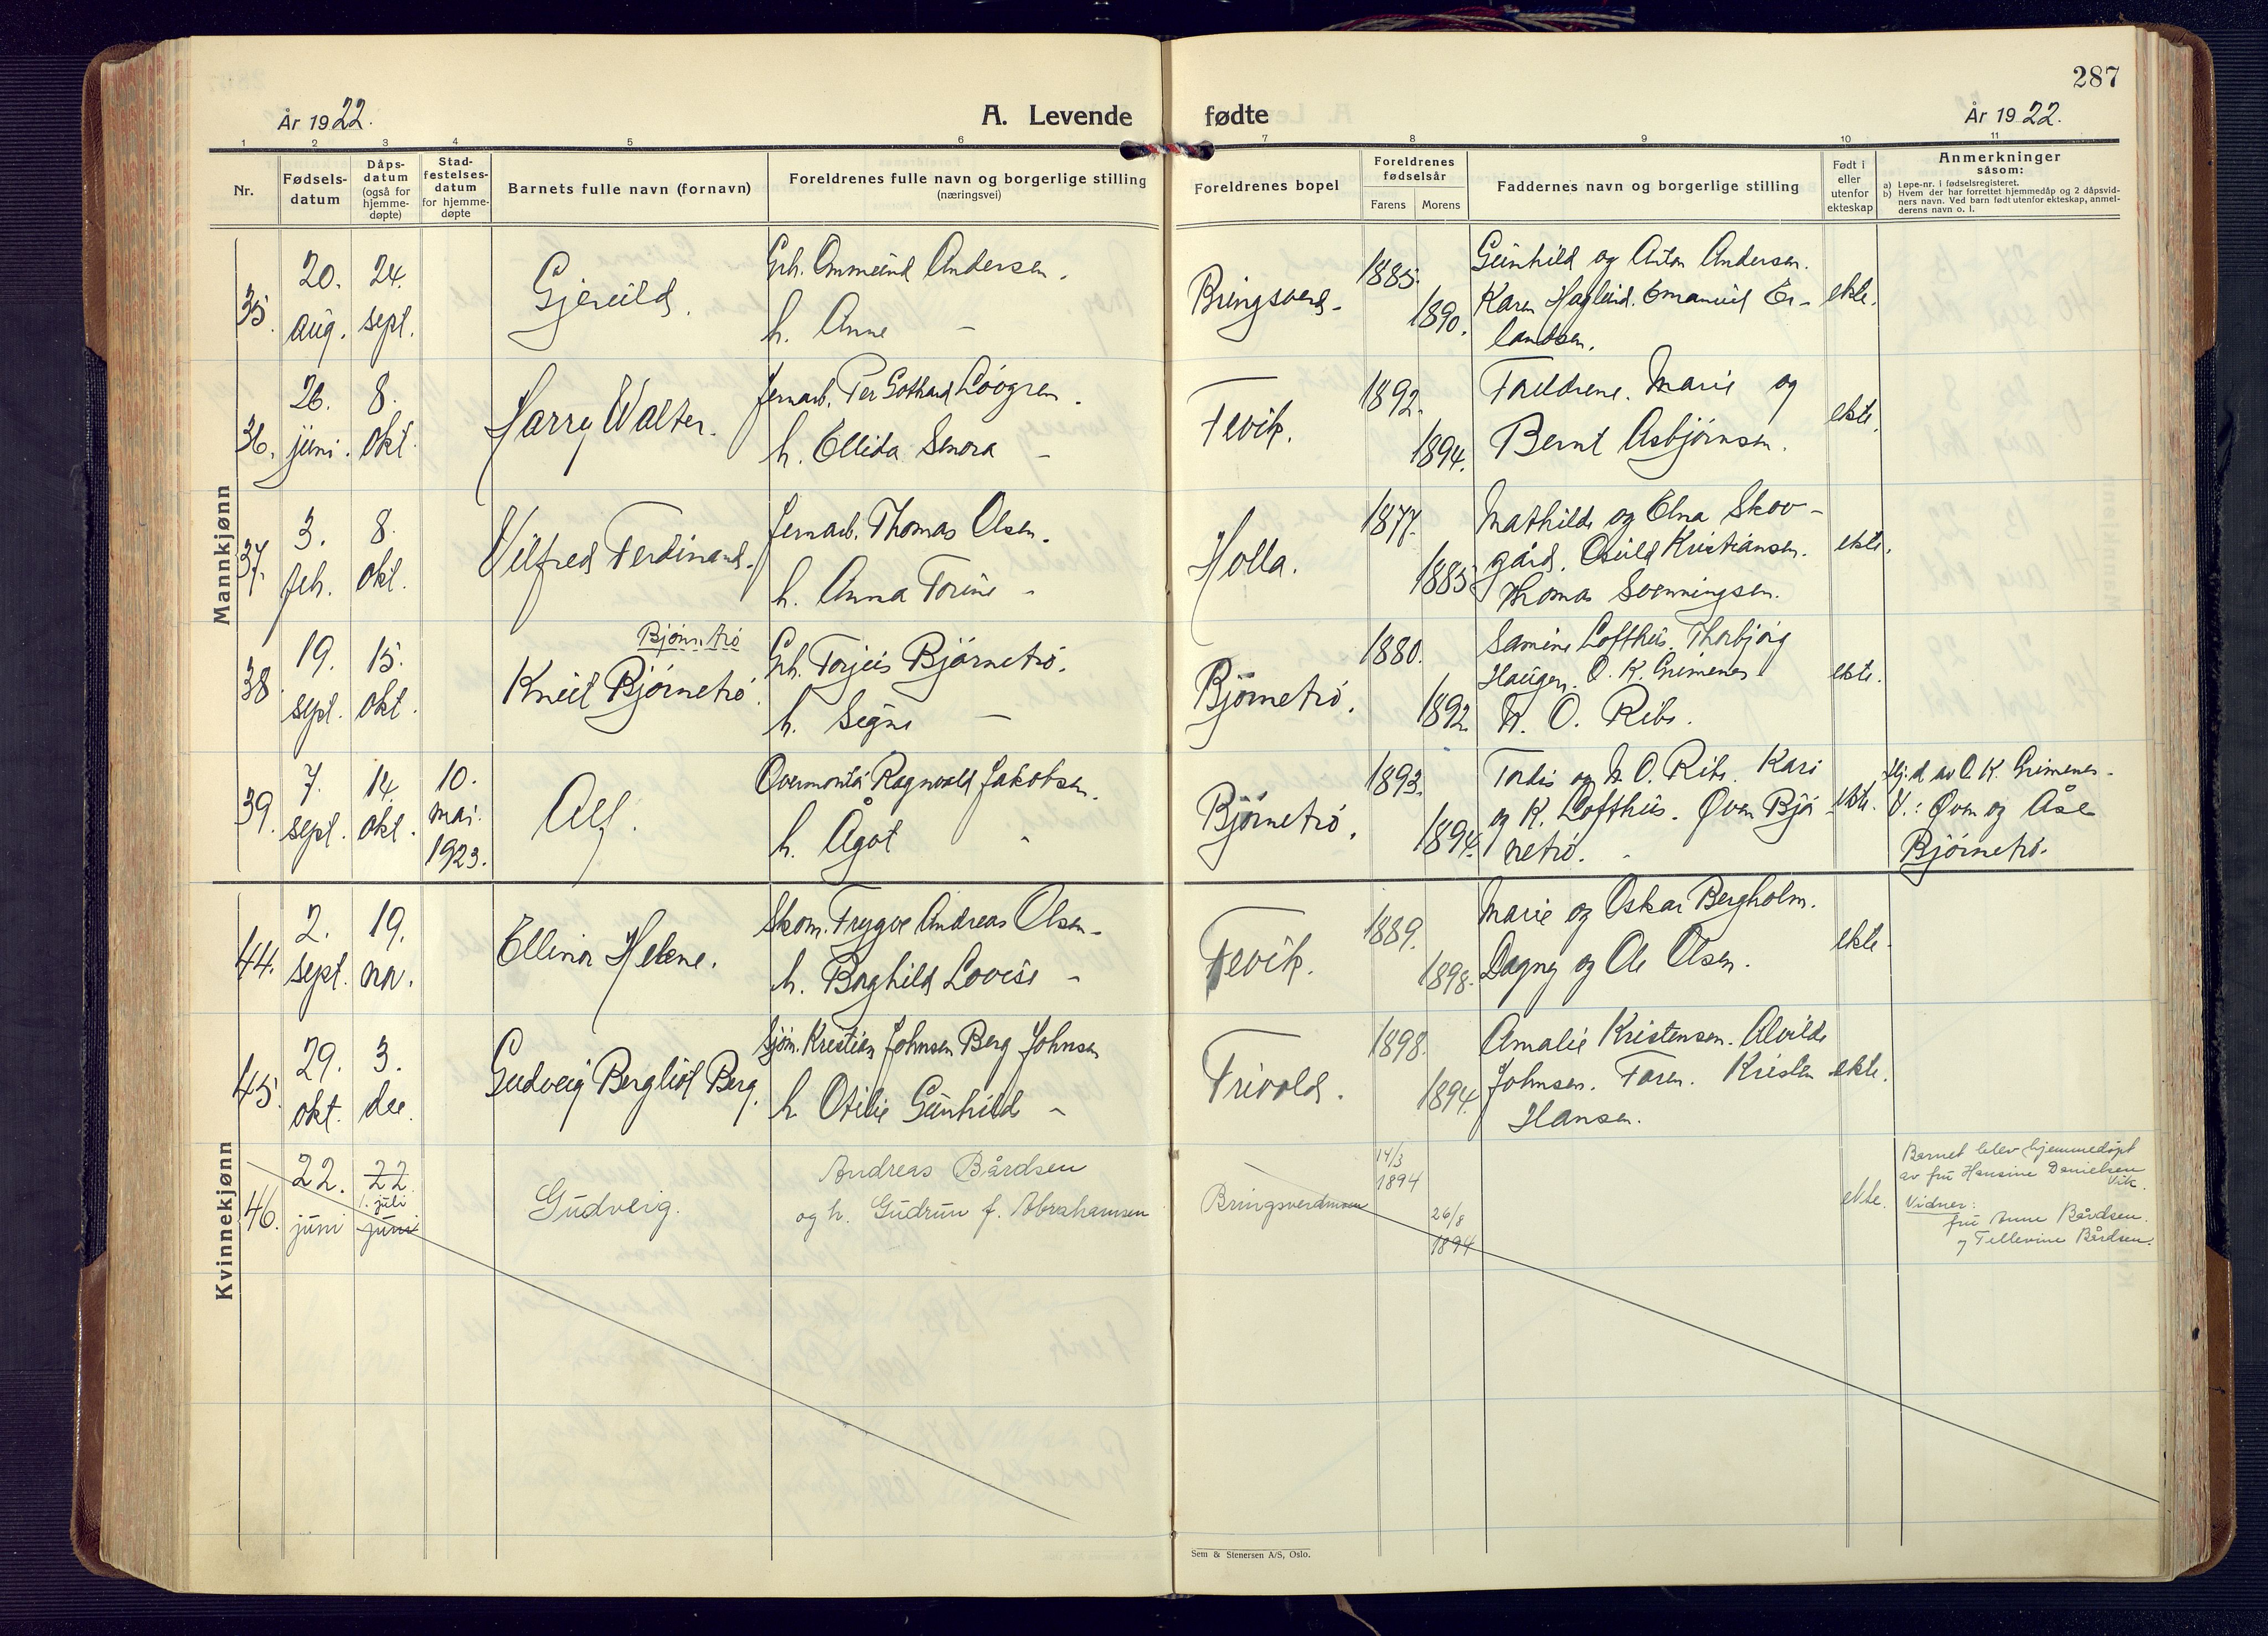 287
År 1922.
A. Levende fødte
År 1922.
1 2 3 4 5 6 7 8 9 10 11
Nr.
Fødsels-
datum
Dåps-
datum
(også for
hjemme-
døpte)
Stad-
festelses-
datum
for hjemme-
døpte
Barnets fulle navn (fornavn)
Foreldrenes fulle navn og borgerlige stilling
(næringsvei)
Foreldrenes bopel
Foreldrenes
fødselsår
Farens Morens
Faddernes navn og borgerlige stilling
Født i
eller
utenfor
ekteskap
Anmerkninger
såsom:
a) Løpe-nr. i fødselsregisteret.
b) Hvem der har forrettet hjemmedåp og 2 dåpsvid-
ners navn. Ved barn født utenfor ekteskap, anmel-
derens navn o. l.
Mannkjønn
35. 20. aug. 24. sept. Gjeruld.
Grb. Ommund Andersen.
h. Anne -
Bringsverd. 1885. 1890.
Gunhild og Anton Andersen.
Karen Haglund. Emanuel Er-
landsen.
ekte.
36. 26. juni. 8. okt. Harry Walter.
Jernarb. Per Gotthard Lövgren.
h. Ellida Senora -
Fevik. 1892. 1894.
Foreldrene. Marie og
Bernt Asbjørnsen.
ekte.
37. 3. feb. 8. okt. Vilfred Ferdinand.
Jernarb. Thomas Olsen.
h. Anna Torine -
Holla. 1877. 1885
Mathilde og Elna Skov-
gård. Osuld Kristiansen.
Thomas Svenningsen.
ekte.
38. 19. sept. 15. okt. Bjørnetrø
Knut Bjørnetrø.
Grb. Torjus Bjørnetrø.
h. Signe -
Bjørnetrø. 1880. 1892
Samine Lofthus. Thorbjørg
Haugen. O. K. Grimenes
N. O. Ribe.
ekte.
39. 7. sept. 14. okt. 10. mai. 1923. Alf.
Overmontør Ragnvald Jakobsen.
h. Ågot "
Bjørnetrø. 1893. 1894.
Tordis og N. O. Ribe. Kari
og K. Lofthus. Øven Bjør-
netrø.
ekte.
Hj. d. av O. K. Grimenes.
V.: Øven og Åse
Bjørnetrø.
Kvinnekjønn
44. 2. sept. 19. nov. Ellinor Helene.
Skom. Trygve Andreas Olsen.
h. Borghild Lovise -
Fevik. 1889. 1898.
Marie og Oskar Bergholm.
Dagny og Ole Olsen.
ekte.
45. 29. okt. 3. des. Gudveig Bergliot Berg.
Sjøm. Kristian Johnsen Berg Johnsen
h. Otilie Gunhild -
Trivold. 1898. 1894.
Amalie Kristensen. Alvilde
Johnsen. Faren. Kristen
Hansen.
ekte.
46. 22. juni 22. 1. juli juni Gudveig.
Andreas Bårdsen
og h. Gudrun f. Abrahamsen
Bringsverdmoen 14/3 1894 26/8 1894
ekte.
Barnet blev hjemmedøpt
av fru Hansine Danielsen
Vik.
Vidner:
fru Anne Bårdsen.
og Tellevine Bårdsen.
Sem & Stenersen A/S, Oslo.